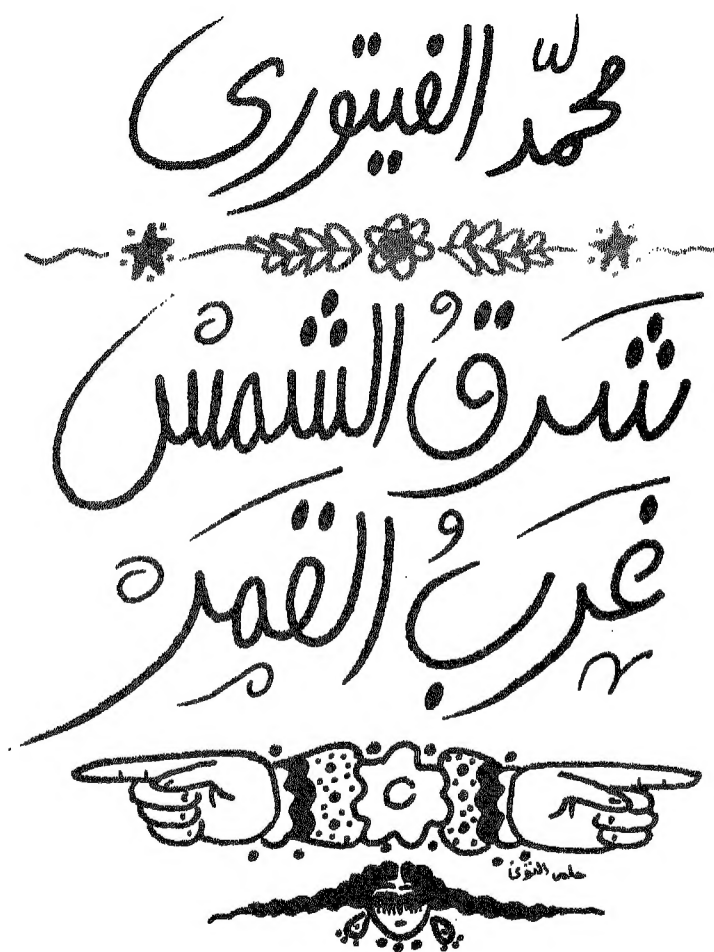 محمّد الفيتورى
شرقُ الشمسْ
غربُ القمرْ
حلمى التونى